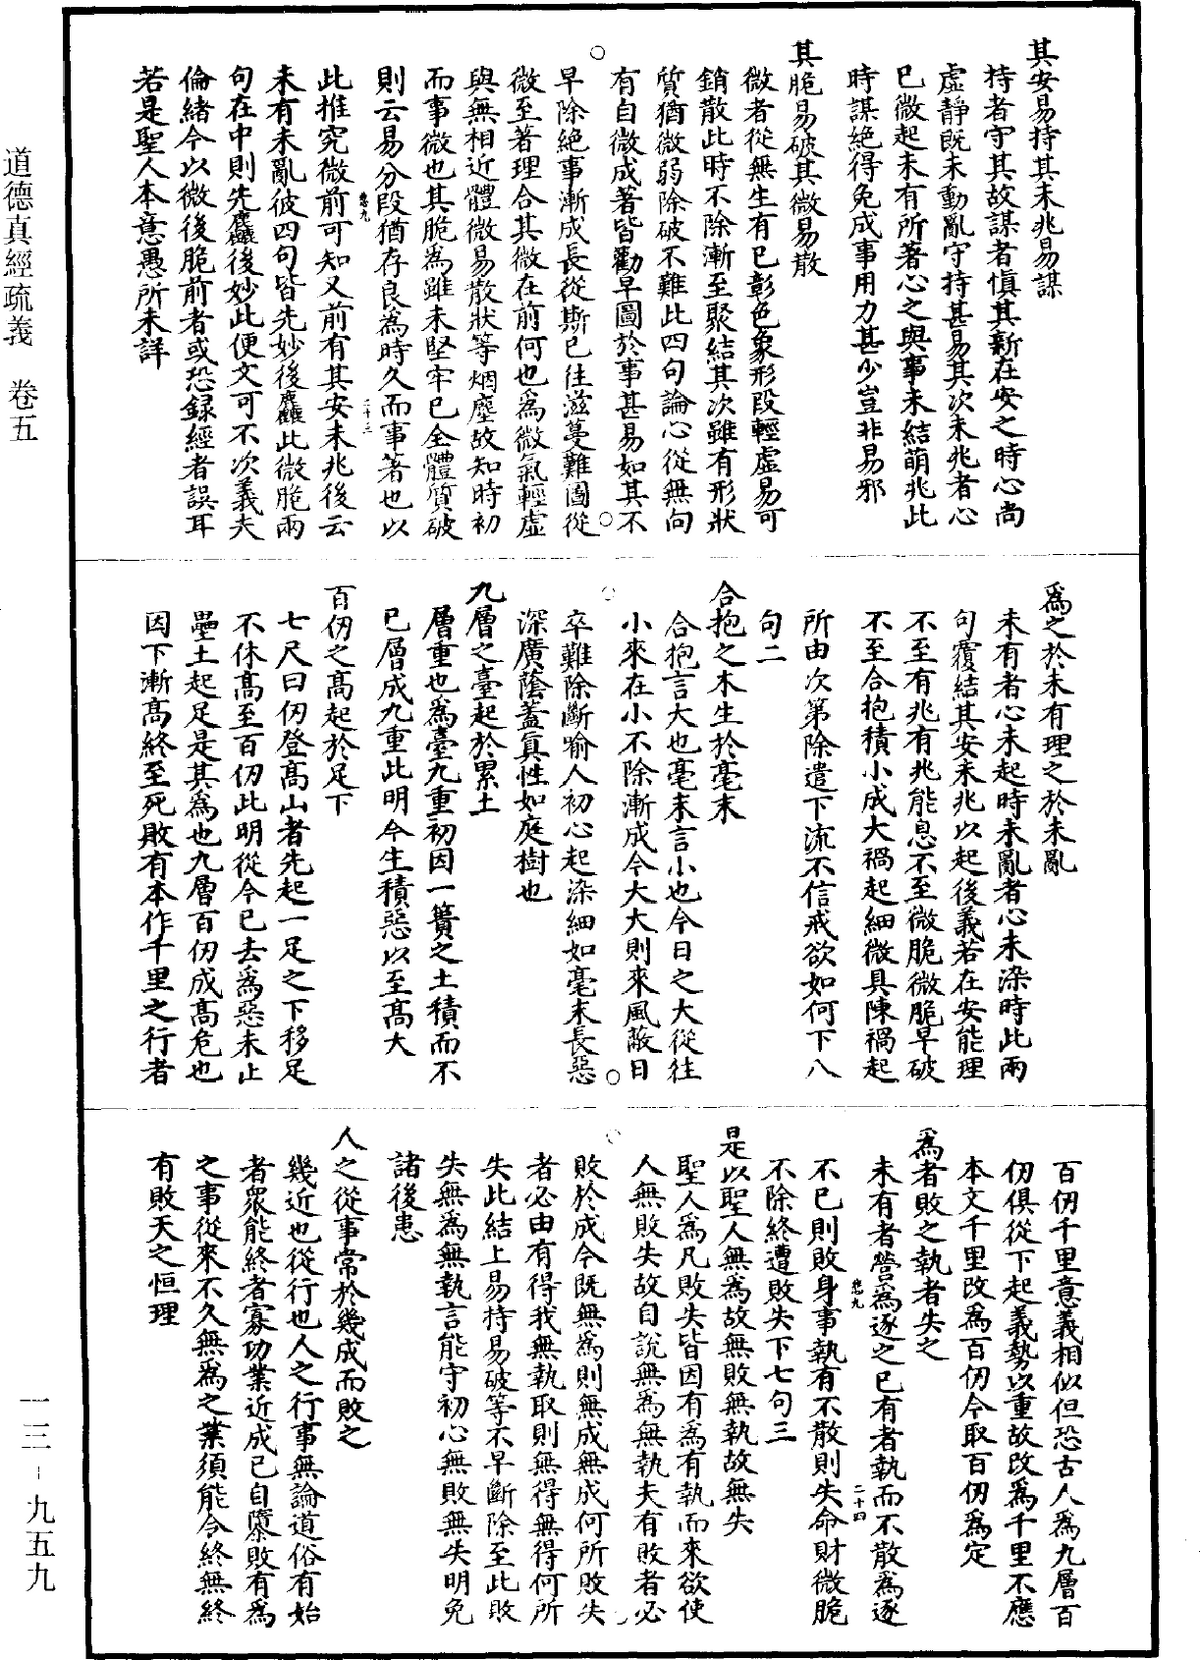 其安易持其未兆易謀
持者守其故謀者慎其新在安之時心尚
虛靜既未動亂守持甚易其次未兆者心
已微起未有所著心之與事未結萌兆此
時謀絕得免成事用力甚少豈非易邪
其脆易破其微易散
微者從無生有已彰色象形段輕虛易可
銷散此時不除漸至聚結其次雖有形狀
質猶微弱除破不難此四句論心從無向
有自微成著皆勸早圖於事甚易如其不
早除絕事漸成長從斯已往滋蔓難圖從
微至著理合其微在前何也為微氣輕虛
與無相近體微易散狀等烟塵故知時初
而事微也其脆為雖未堅牢已全體質破
則云易分段猶存良為時久而事著也以
此推究微前可知又前有其安未兆後云
未有未亂彼四句皆先妙後麤此微脆兩
句在中則先麤後妙此便文可不次義夫
倫緒今以微後脆前者或恐録經者誤耳
若是聖人本意愚所未詳
為之於未有理之於未亂
未有者心未起時未亂者心未染時此兩
句覆結其安未兆以起後義若在安能理
不至有兆有兆能息不至微脆微脆早破
不至合抱積小成大禍起細微具陳禍起
所由次第除遣下流不信戒欲如何下八
句二
合抱之木生於毫末
合抱言大也毫末言小也今日之大從往
小來在小不除漸成今大大則來風蔽日
卒難除斷喻人初心起染細如毫末長惡
深廣蔭蓋真性如庭樹也
九層之臺起於累土
層重也為臺九重初因一簣之土積而不
已層成九重此明今生積惡以至高大
百仞之高起於足下
七尺曰仞登高山者先起一足之下移足
不休高至百仞此明從今已去為惡未止
壘土起足是其為也九層百仞成高危也
因下漸高終至死敗有本作千里之行者
百仞千里意義相似但恐古人為九層百
仞俱從下起義勢以重故改為千里不應
本文千里改為百仞今取百仞為定
為者敗之執者失之
未有者營為逐之已有者執而不散為逐
不已則敗身事執有不散則失命財微脆
不除終遭敗失下七句三
是以聖人無為故無敗無執故無失
聖人為凡敗失皆因有為有執而來欲使
人無敗失故自說無為無執夫有敗者必
敗於成今既無為則無成無成何所敗失
者必由有得我無執取則無得無得何所
失此結上易持易破等不早斷除至此敗
失無為無執言能守初心無敗無失明免
諸後患
人之從事常於幾成而敗之
幾近也從行也人之行事無論道俗有始
者眾能終者寡功業近成已自隳敗有為
之事從來不久無為之業須能令終無終
有敗天之恒理
道德真經疏義 卷五
一三-九五九
卷九
二十三
卷九
二十四